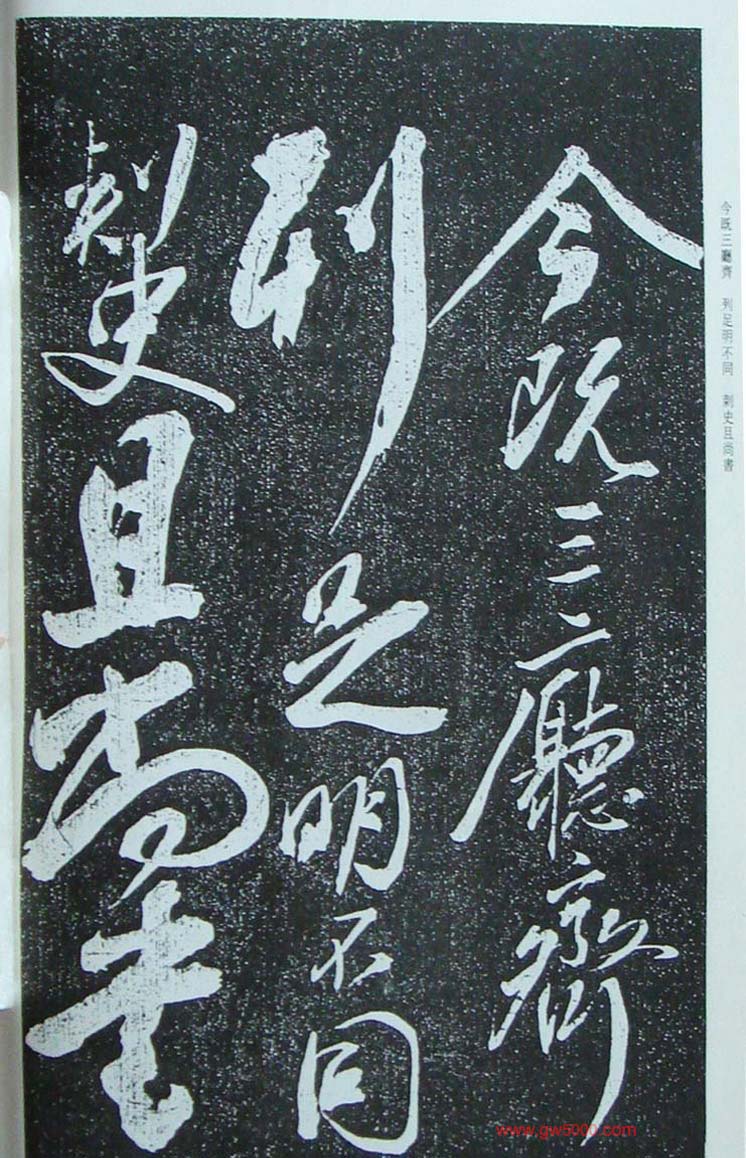 今既三廳齊
列足明不同
刺史且尚書
今既三廳齊 列足明不同 刺史且尚書
www.gw5000.com